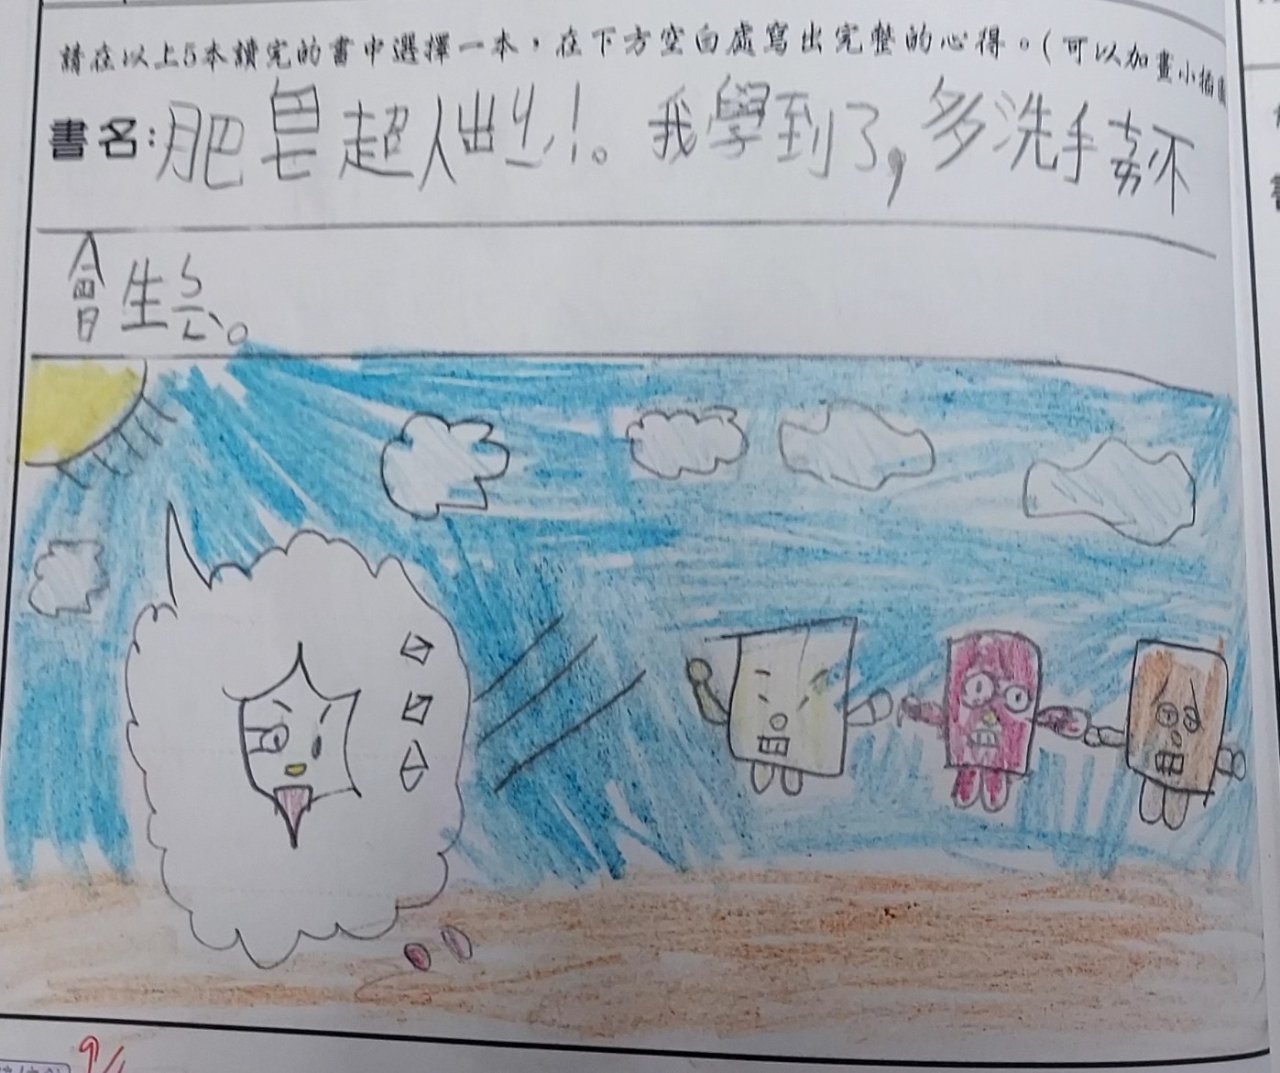 請在以上5本讀完的書中選擇一本，在下方空白處寫出完整的心得。(可以加畫小插圖
書名：肥皂超人出ㄐㄧˊ！。我學到了，多洗手ㄘㄞˊ不
會生ㄅㄧㄥˋ。
9/